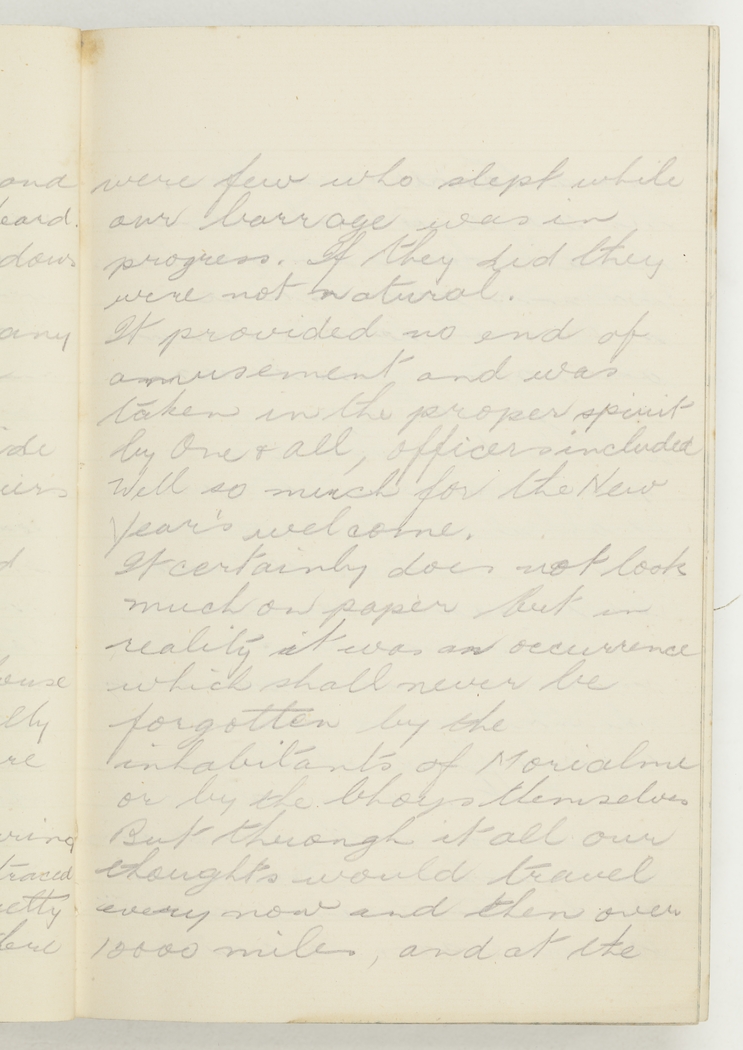 and
eard.
dows
any
ide
iers
d
ouse
lly
re
uring
traced
etty
here
were few who slept while
our barrage was in
progress. If they did they
were not natural.
It provided no end of
amusement and was
taken in the proper spirit
by One & all, officers included
Well so much for the New
Year's welcome.
It certainly does not look
much on paper but in
reality it was an occurrence
which shall never be
forgotten by the
inhabitants of Morialme
or by the bhoys themselves
But through it all our
thoughts would travel
every now and then over
10000 miles, and at the